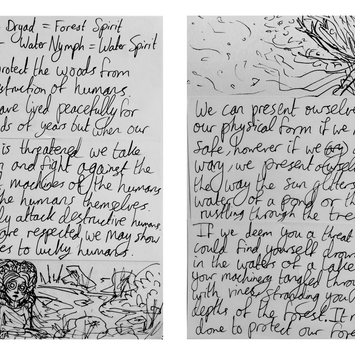 Dryad = Forest Spirit
- Water Nymph = Water Spirit
protect the woods from
struction of humans.
ave lived peacefully for
ds of years but when our
is threatened we take
and fight against the
machines of the humans
the humans themselves.
ly attack destructive humans.
are respected we may show
es to lucky humans.
We can present ourselve
our physical form if we
safe, however if we
way, we present ourselve
the way the sun glitter
water of a pond or th
rustling through the tree
If we deem you a threat
could find yourself drow
in the waters of a lake
your machinery tangled throu
with vines strangling you
depths of the forest. It
done to protect our for